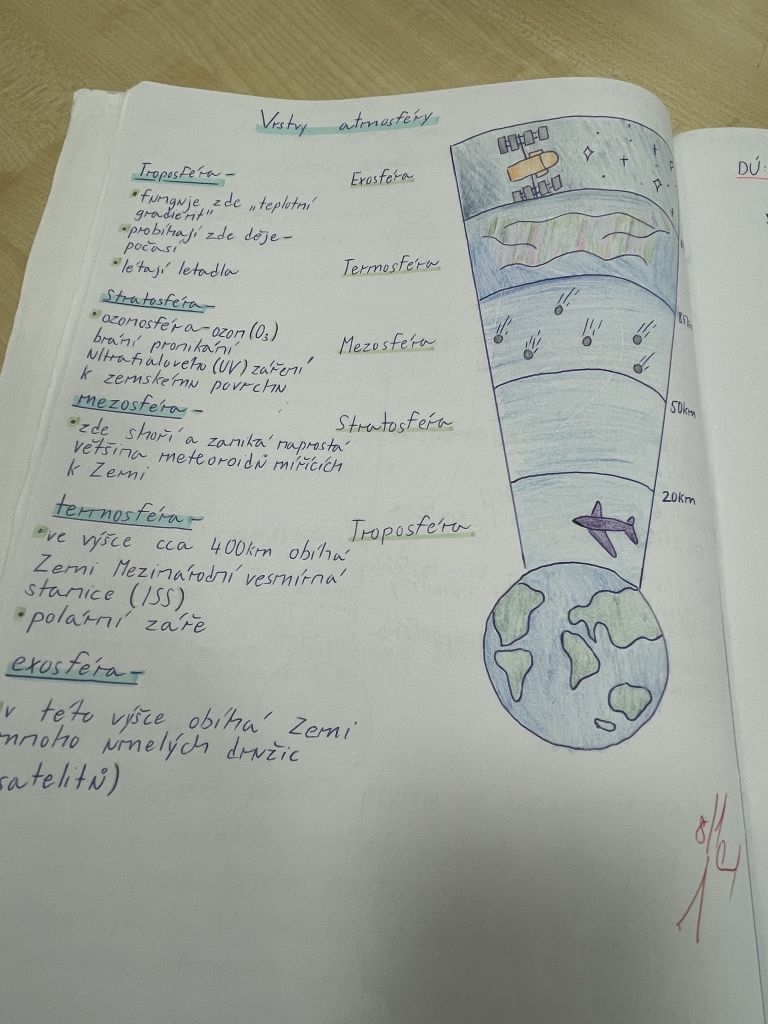 Vrstvy atmosféry
Troposféra -
• funguje zde „teplotní
gradient"
• probíhají zde děje -
počasí
• létají letadla
Stratosféra -
• ozonosféra - ozon (O₃)
brání pronikání
ultrafialového (UV) záření
k zemskému povrchu
mezosféra -
• zde shoří a zaniká naprostá
většina meteoroidů mířících
k Zemi
termosféra -
• ve výšce cca 400km obíhá
Zemi Mezinárodní vesmírná
stanice (ISS)
• polární záře
exosféra -
v této výšce obíhá Zemi
mnoho umělých družic
satelitů)
Exosféra
Termosféra
Mezosféra
Stratosféra
Troposféra
85km
50km
20km
DÚ:
1